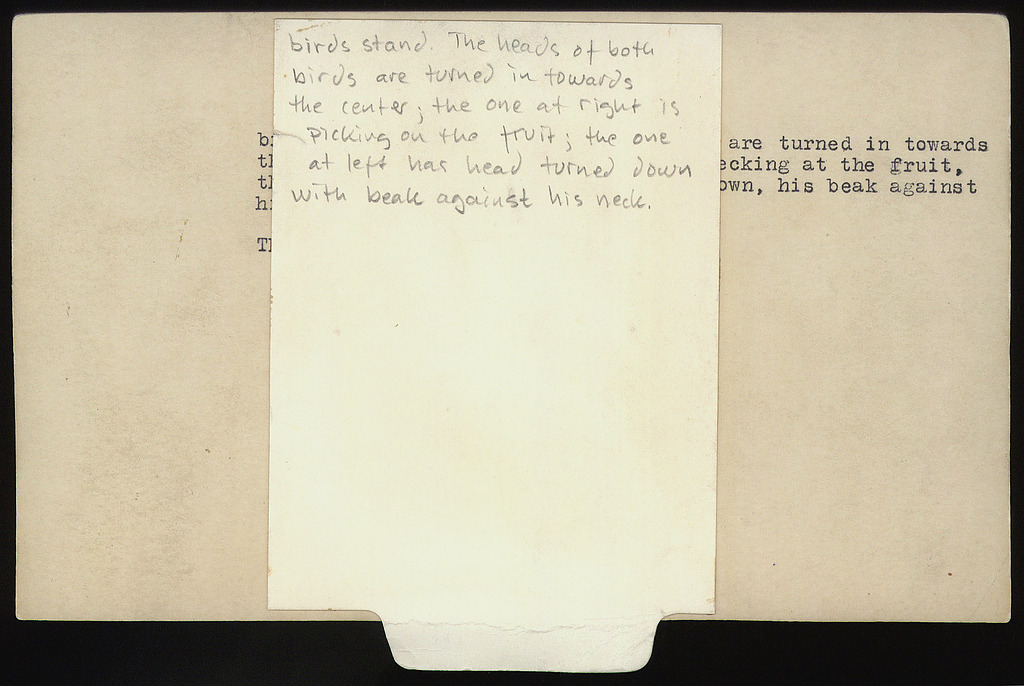 birds stand. The heads of both
birds are turned in towards
the center; the one at right is
picking on the fruit; the one
at left has head turned down
with beak against his neck.
are turned in towards
ecking at the fruit,
own, his beak against